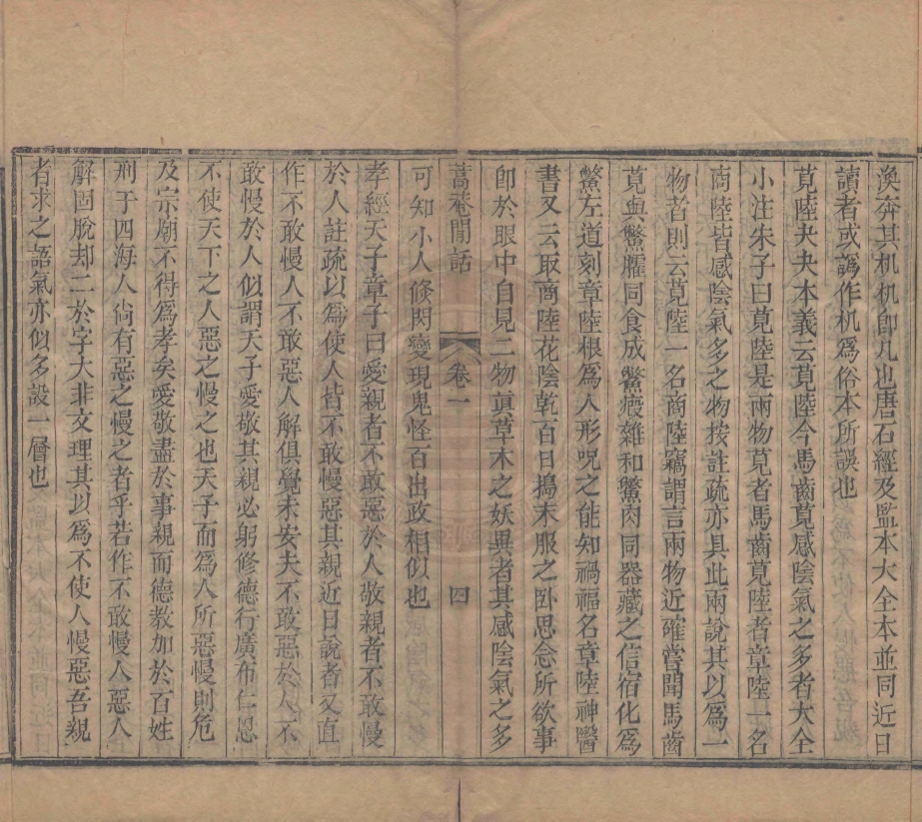 渙奔其机机卽几也唐石經及監本大全本並同近日
讀者或譌作机爲俗本所誤也
莧陸夬夬本義云莧陸今馬齒莧感陰氣之多者大全
小注朱子曰莧陸是兩物莧者馬齒莧陸者章陸一名
商陸皆感陰氣多之物按註疏亦具此兩說其以爲一
物者則云莧陸一名商陸竊謂言兩物近確嘗聞馬齒
莧與鱉臛同食成鱉瘕雜和鱉肉同器藏之信宿化爲
鱉左道刻章陸根爲人形咒之能知禍福名章陸神醫
書又云取商陸花陰乾百日搗末服之卧思念所欲事
卽於眼中自見二物真草木之妖異者其感陰氣之多
蒿菴閒話 卷一 四
可知小人倐閃變現鬼怪百出政相似也
孝經天子章子曰愛親者不敢惡於人敬親者不敢慢
於人註疏以爲使人皆不敢慢惡其親近日說者又直
作不敢慢人不敢惡人解俱覺未安夫不敢惡於人不
敢慢於人似謂天子愛敬其親必躬修德行廣布仁恩
不使天下之人惡之慢之也天子而爲人所惡慢則危
及宗廟不得爲孝矣愛敬盡於事親而德教加於百姓
刑于四海人尙有惡之慢之者乎若作不敢慢人惡人
解固脫却二於字大非文理其以爲不使人慢惡吾親
者求之語氣亦似多設一層也